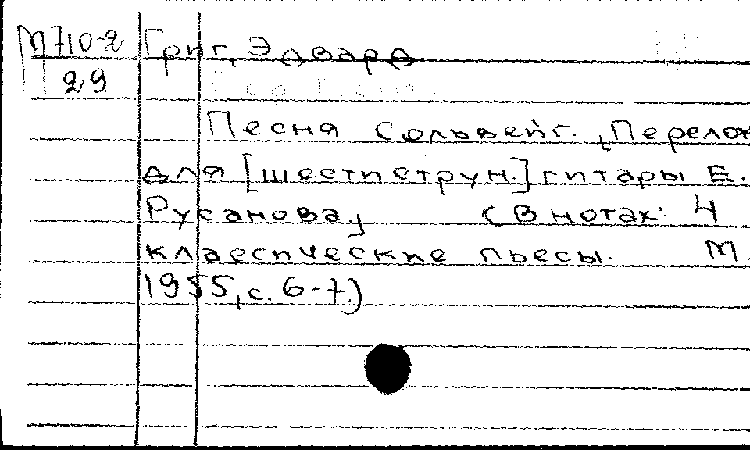 М710-2 Григ, Эдвард
29
Песня Сольвейг. [Перелож
для [шестиструн.] гитары Е.
Русанова] (В нотах: 4
классические пьесы. М.
1955, с. 6-7.)